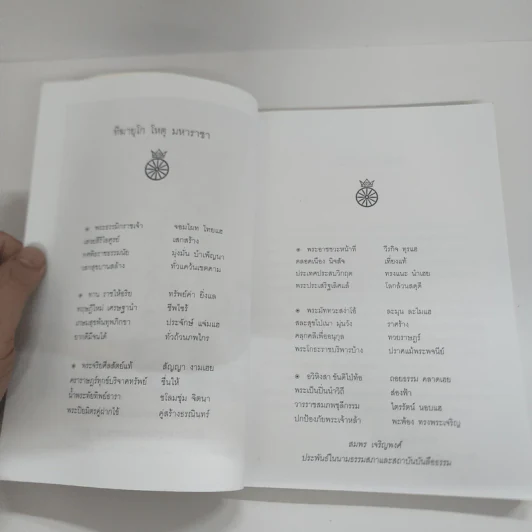 ทีฆายุโก โหตุ มหาราชา
๏ พระธรรมิกราชเจ้า จอมโมท ไทยแฮ
เสกสร้าง
มุ่งมั่น บำเพ็ญนา
ทั่วแคว้นเขตคาม
๏ ทาน ราชให้อริย ทรัพย์ค่า ยิ่งแล
ทฤษฎีใหม่ เศรษฐานำ ชีพไซร้
ประจักษ์ แจ่มแฮ
ยากดีมีจนได้ ทั่วถ้วนภพไกร
๏ พระจริยศีลสัตย์แท้ สัญญา งามเฮย
ดาราษฎร์ทุกข์บริจาคทรัพย์ ชื่นให้
น้ำพระทัยทิพย์ธารา ชโลมชุ่ม จิตนา
พระปิยมิตรคู่ยากใช้ คู่สร้างธรณินทร์
๏ พระอาชชวะหน้าที่ วิ่งกิจ ทุรแฮ
ตลอดเนือง นิจสัจ เที่ยงแท้
ประเทศประสบวิกฤต ทรงแนะ นำเฮย
พระประเสริฐเลิศแล้ โลกล้วนสดุดี
๏ พระมัททวะสง่าโอ้ ละมุน ละไมแฮ
ราศร้าง
คลุกคลีเพื่อหนุกูล ทวยราษฎร์
ปราศแม้พระพจนีย์
๏ อวิหิงสา ขันติไป่ท้อ ถอยธรรม คลาดเฮย
พระเป็นปิ่นนำวิถี ส่องฟ้า
วางราชสมภพชุลีกรรม ไตรรัตน์ นอบแฮ
ปกป้องภัยพระเจ้าหล้า พะพ้อง ทรงพระเจริญ
สมพร เจริญพงศ์
ประพันธ์ในนามธรรมสภาและสถาบันบันลือธรรม